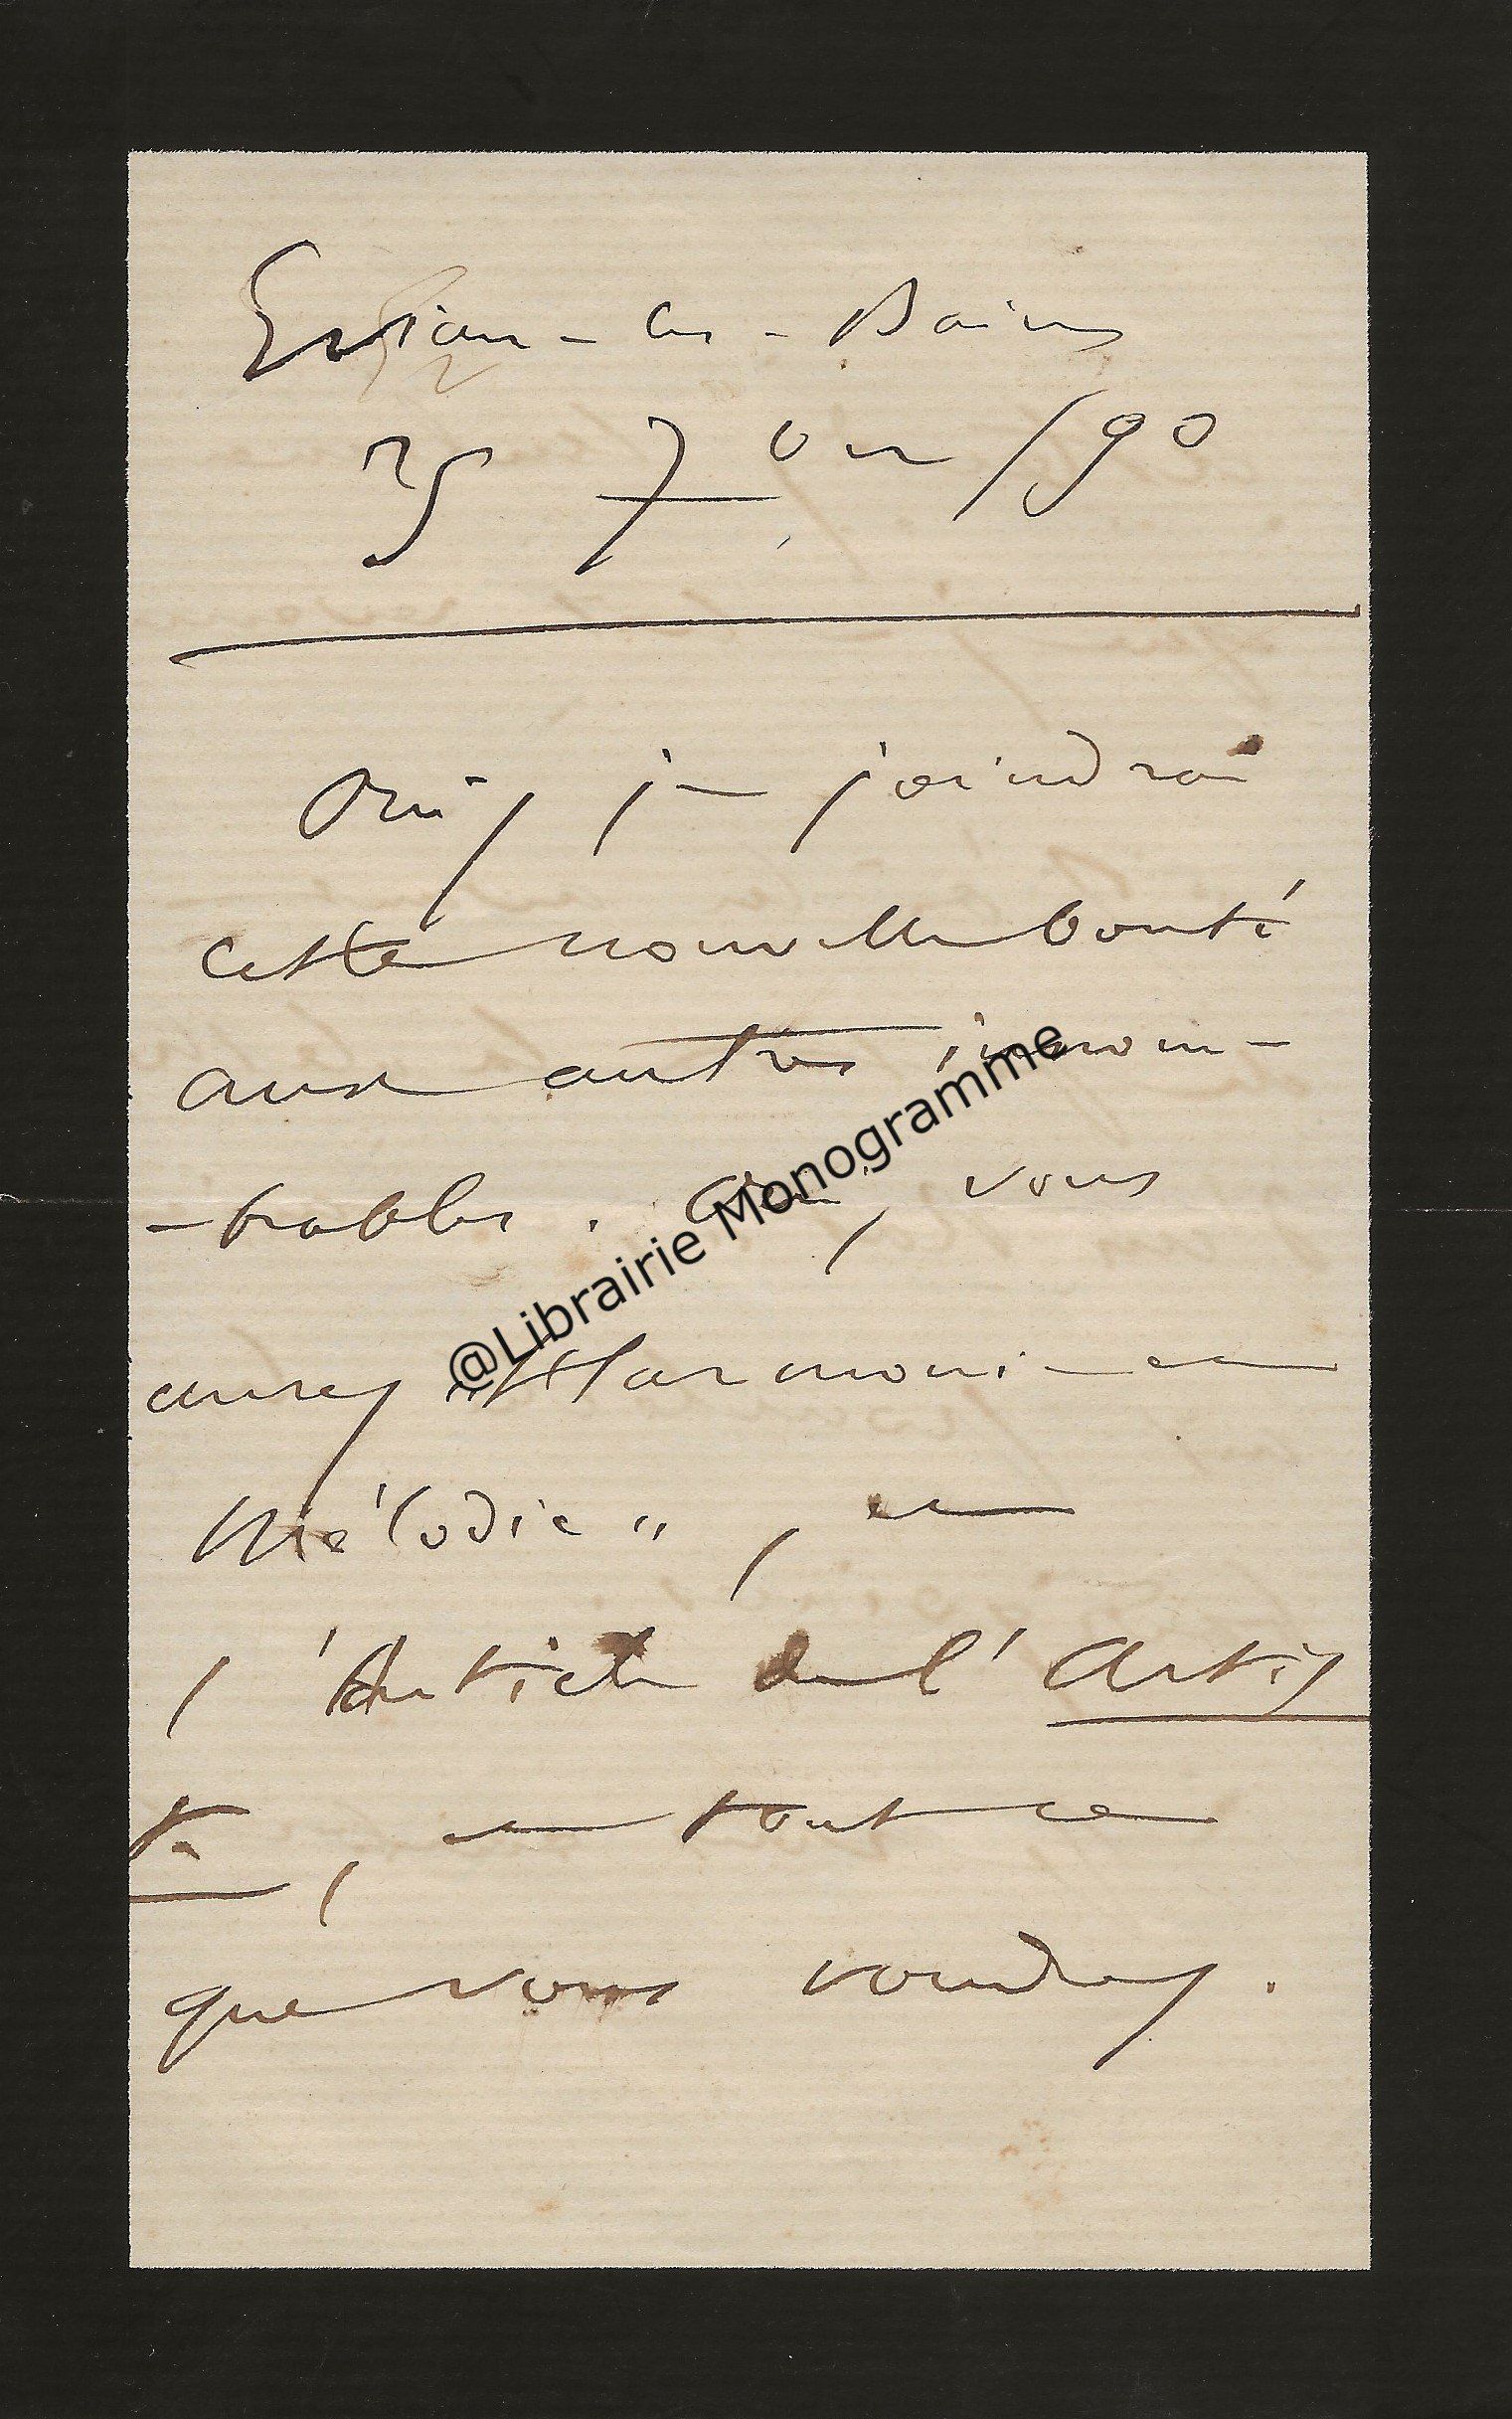 Evian-les-Bains
25 7bre /90
Oui, je joindrai
cette nouvelle bonté
aux autres innom-
-brables. Oui, vous
aurez "Harmonie et
Mélodie", et
l'Article de l'Artis
te, et tout ce
que vous voudrez.
@Librairie Monogramme